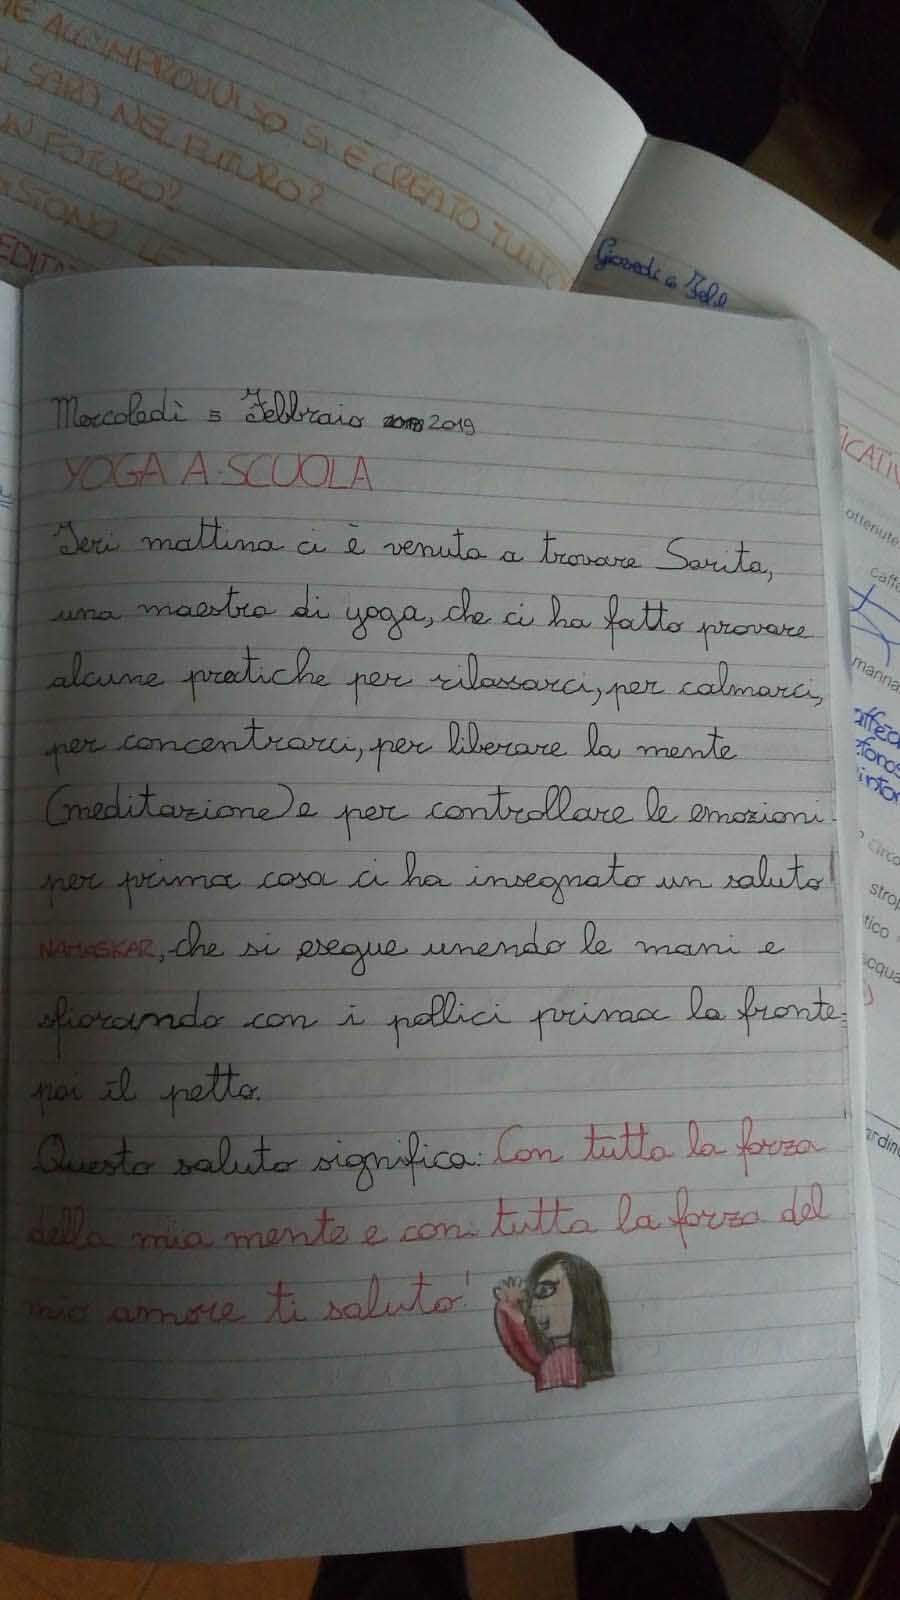 ALL'IMPROVVISO SI È CREATO TUTTO
SARÒ NEL FUTURO?
UN FUTURO?
Giovedì 6 Feb
Mercoledì 5 Febbraio 2019
YOGA A SCUOLA
Ieri mattina ci è venuta a trovare Sarita,
una maestra di yoga, che ci ha fatto provare
alcune pratiche per rilassarci, per calmarci,
per concentrarci, per liberare la mente
(meditazione) e per controllare le emozioni.
per prima cosa ci ha insegnato un saluto
NAMASKAR, che si esegue unendo le mani e
sfiorando con i pollici prima la fronte
poi il petto.
Questo saluto significa: Con tutta la forza
della mia mente e con tutta la forza del
mio amore ti saluto!
ottenute
caffè
manna
circo
strop
tico
acqua